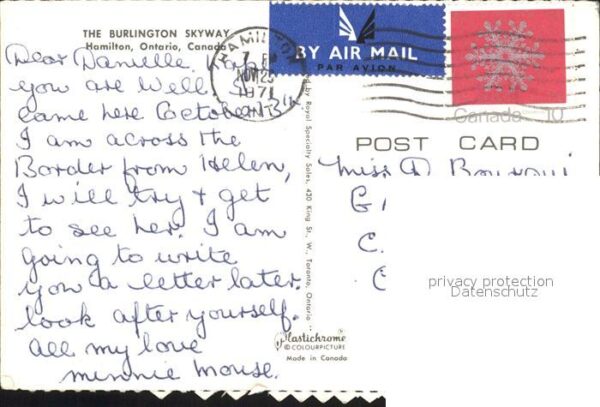 THE BURLINGTON SKYWAY
Hamilton, Ontario, Canada
Dear Danielle,
you are well. I
came here October 31st
I am across the
Border from Helen,
I will try & get
to see her. I am
going to write
you a letter later.
look after yourself.
all my love
minnie mouse.
HAMILTON
NOV 25
1971
ONT
BY AIR MAIL
PAR AVION
Canada 10
POST CARD
Miss D
by Royal Specialty Sales, 430 King St., W., Toronto, Ontario
Plastichrome
© COLOURPICTURE
Made in Canada
privacy protection
Datenschutz